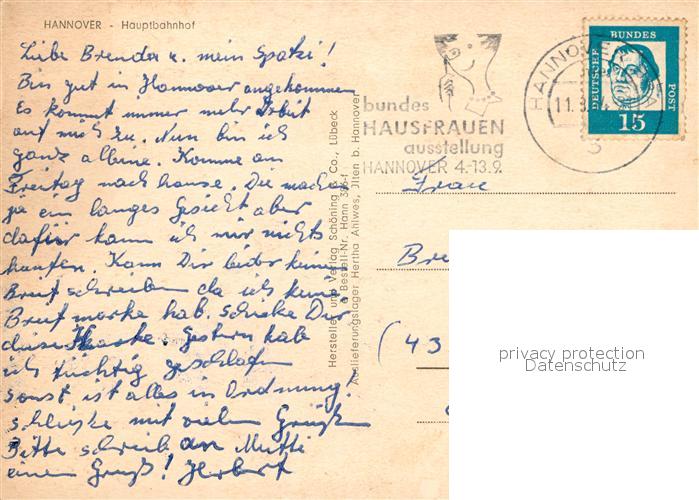 HANNOVER - Hauptbahnhof
Liebe Brenda u. mein Spatzi!
Bin gut in Hannover angekommen
Es kommt immer mehr Arbeit
auf mich zu. Nun bin ich
ganz alleine. Komme am
Freitag nach hause. Die macht
ja ein langes Gesicht aber
dafür kann ich mir nichts
kaufen. Kann Dir leider keinen
Brief schreiben da ich keine
Brief marke hab. schicke Dir
diese Karte. Gestern hab
ich tüchtig geschlafen
sonst ist alles in Ordnung!
schließe mit vielen Grüßen
Bitte schreib an Mutti
einen Gruß! Herbert
Hersteller und Verlag Schöning & Co., Lübeck
Bestell-Nr. Hann
Auslieferungslager Hertha Ahlwes, Ilten b. Hannover
bundes
HAUSFRAUEN
ausstellung
HANNOVER 4.-13.9.
HANNOVER
11.
3
DEUTSCHE BUNDES POST
15
Frau
Bre
(43
privacy protection
Datenschutz